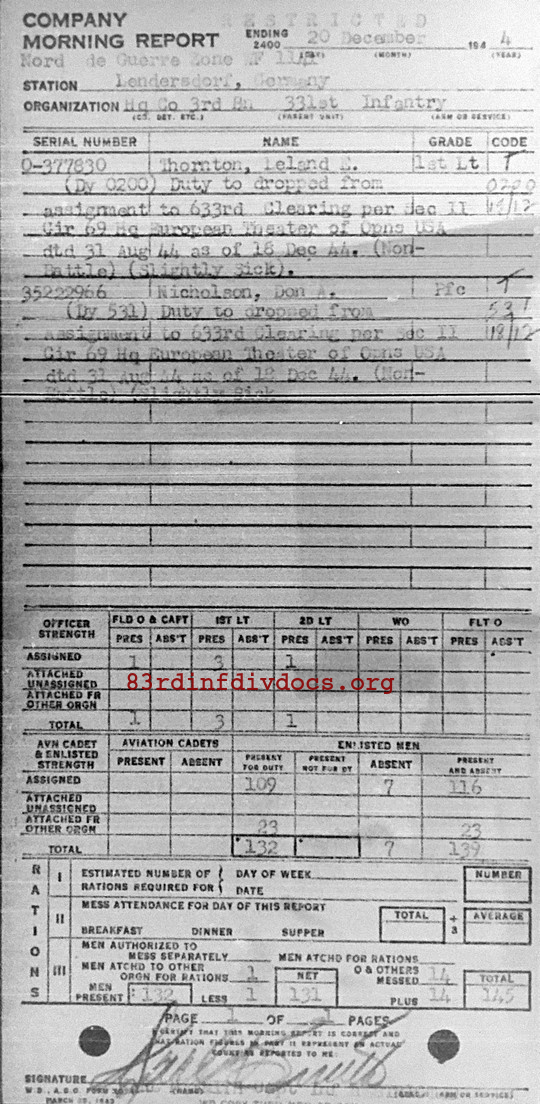 COMPANY RESTRICTED
MORNING REPORT ENDING 2400 20 December 194 4
(DAY) (MONTH) (YEAR)
Nord de Guerre Zone
STATION Lendersdorf, Germany
ORGANIZATION Hq Co 3rd Bn 331st Infantry
(CO. DET. ETC.) (PARENT UNIT) (ARM OR SERVICE)
SERIAL NUMBER NAME GRADE CODE
O-377830 Thornton, Leland E. 1st Lt T
(Dy 0200) Duty to dropped from 0200
assignment to 633rd Clearing per Sec II 18/12
Cir 69 Hq European Theater of Opns USA
dtd 31 Aug 44 as of 18 Dec 44. (Non-
Battle) (Slightly Sick).
35222966 Nicholson, Don A. Pfc T
(Dy 531) Duty to dropped from 531
Assignment to 633rd Clearing per Sec II 18/12
Cir 69 Hq European Theater of Opns USA
dtd 31 Aug 44 as of 18 Dec 44. (Non-
Battle) (Slightly Sick
OFFICER STRENGTH FLD O & CAPT 1ST LT 2D LT WO FLT O
PRES ABS'T PRES ABS'T PRES ABS'T PRES ABS'T PRES ABS'T
ASSIGNED 1 3 1
ATTACHED UNASSIGNED
83rdinfdivdocs.org
ATTACHED FR OTHER ORGN
TOTAL 1 3 1
AVN CADET & ENLISTED STRENGTH AVIATION CADETS ENLISTED MEN
PRESENT ABSENT PRESENT FOR DUTY PRESENT NOT FOR DY ABSENT PRESENT AND ABSENT
ASSIGNED 109 7 116
ATTACHED UNASSIGNED
ATTACHED FR OTHER ORGN 23 23
TOTAL 132 7 139
RATIONS
I ESTIMATED NUMBER OF RATIONS REQUIRED FOR { DAY OF WEEK DATE NUMBER
II MESS ATTENDANCE FOR DAY OF THIS REPORT TOTAL ÷ 3 AVERAGE
BREAKFAST DINNER SUPPER
III MEN AUTHORIZED TO MESS SEPARATELY MEN ATCHD FOR RATIONS
MEN ATCHD TO OTHER ORGN FOR RATIONS 1 NET O & OTHERS MESSED 14 TOTAL
MEN PRESENT 132 LESS 1 131 PLUS 14 145
PAGE 1 OF 1 PAGES
I CERTIFY THAT THIS MORNING REPORT IS CORRECT AND
THAT RATION FIGURES IN PART II REPRESENT AN ACTUAL
COUNT AS REPORTED TO ME
SIGNATURE
W.D., A.G.O. FORM (NAME) (GRADE) (ARM OR SERVICE)
MARCH